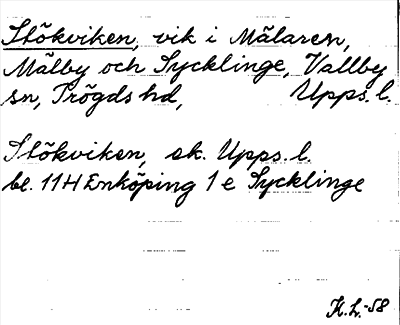 Stökviken, vik i Mälaren,
Mälby och Sycklinge, Vallby
sn, Trögds hd, Upps. l.
Stökviken, ek. Upps. l.
bl. 11H Enköping 1 e Sycklinge
H. L. -58